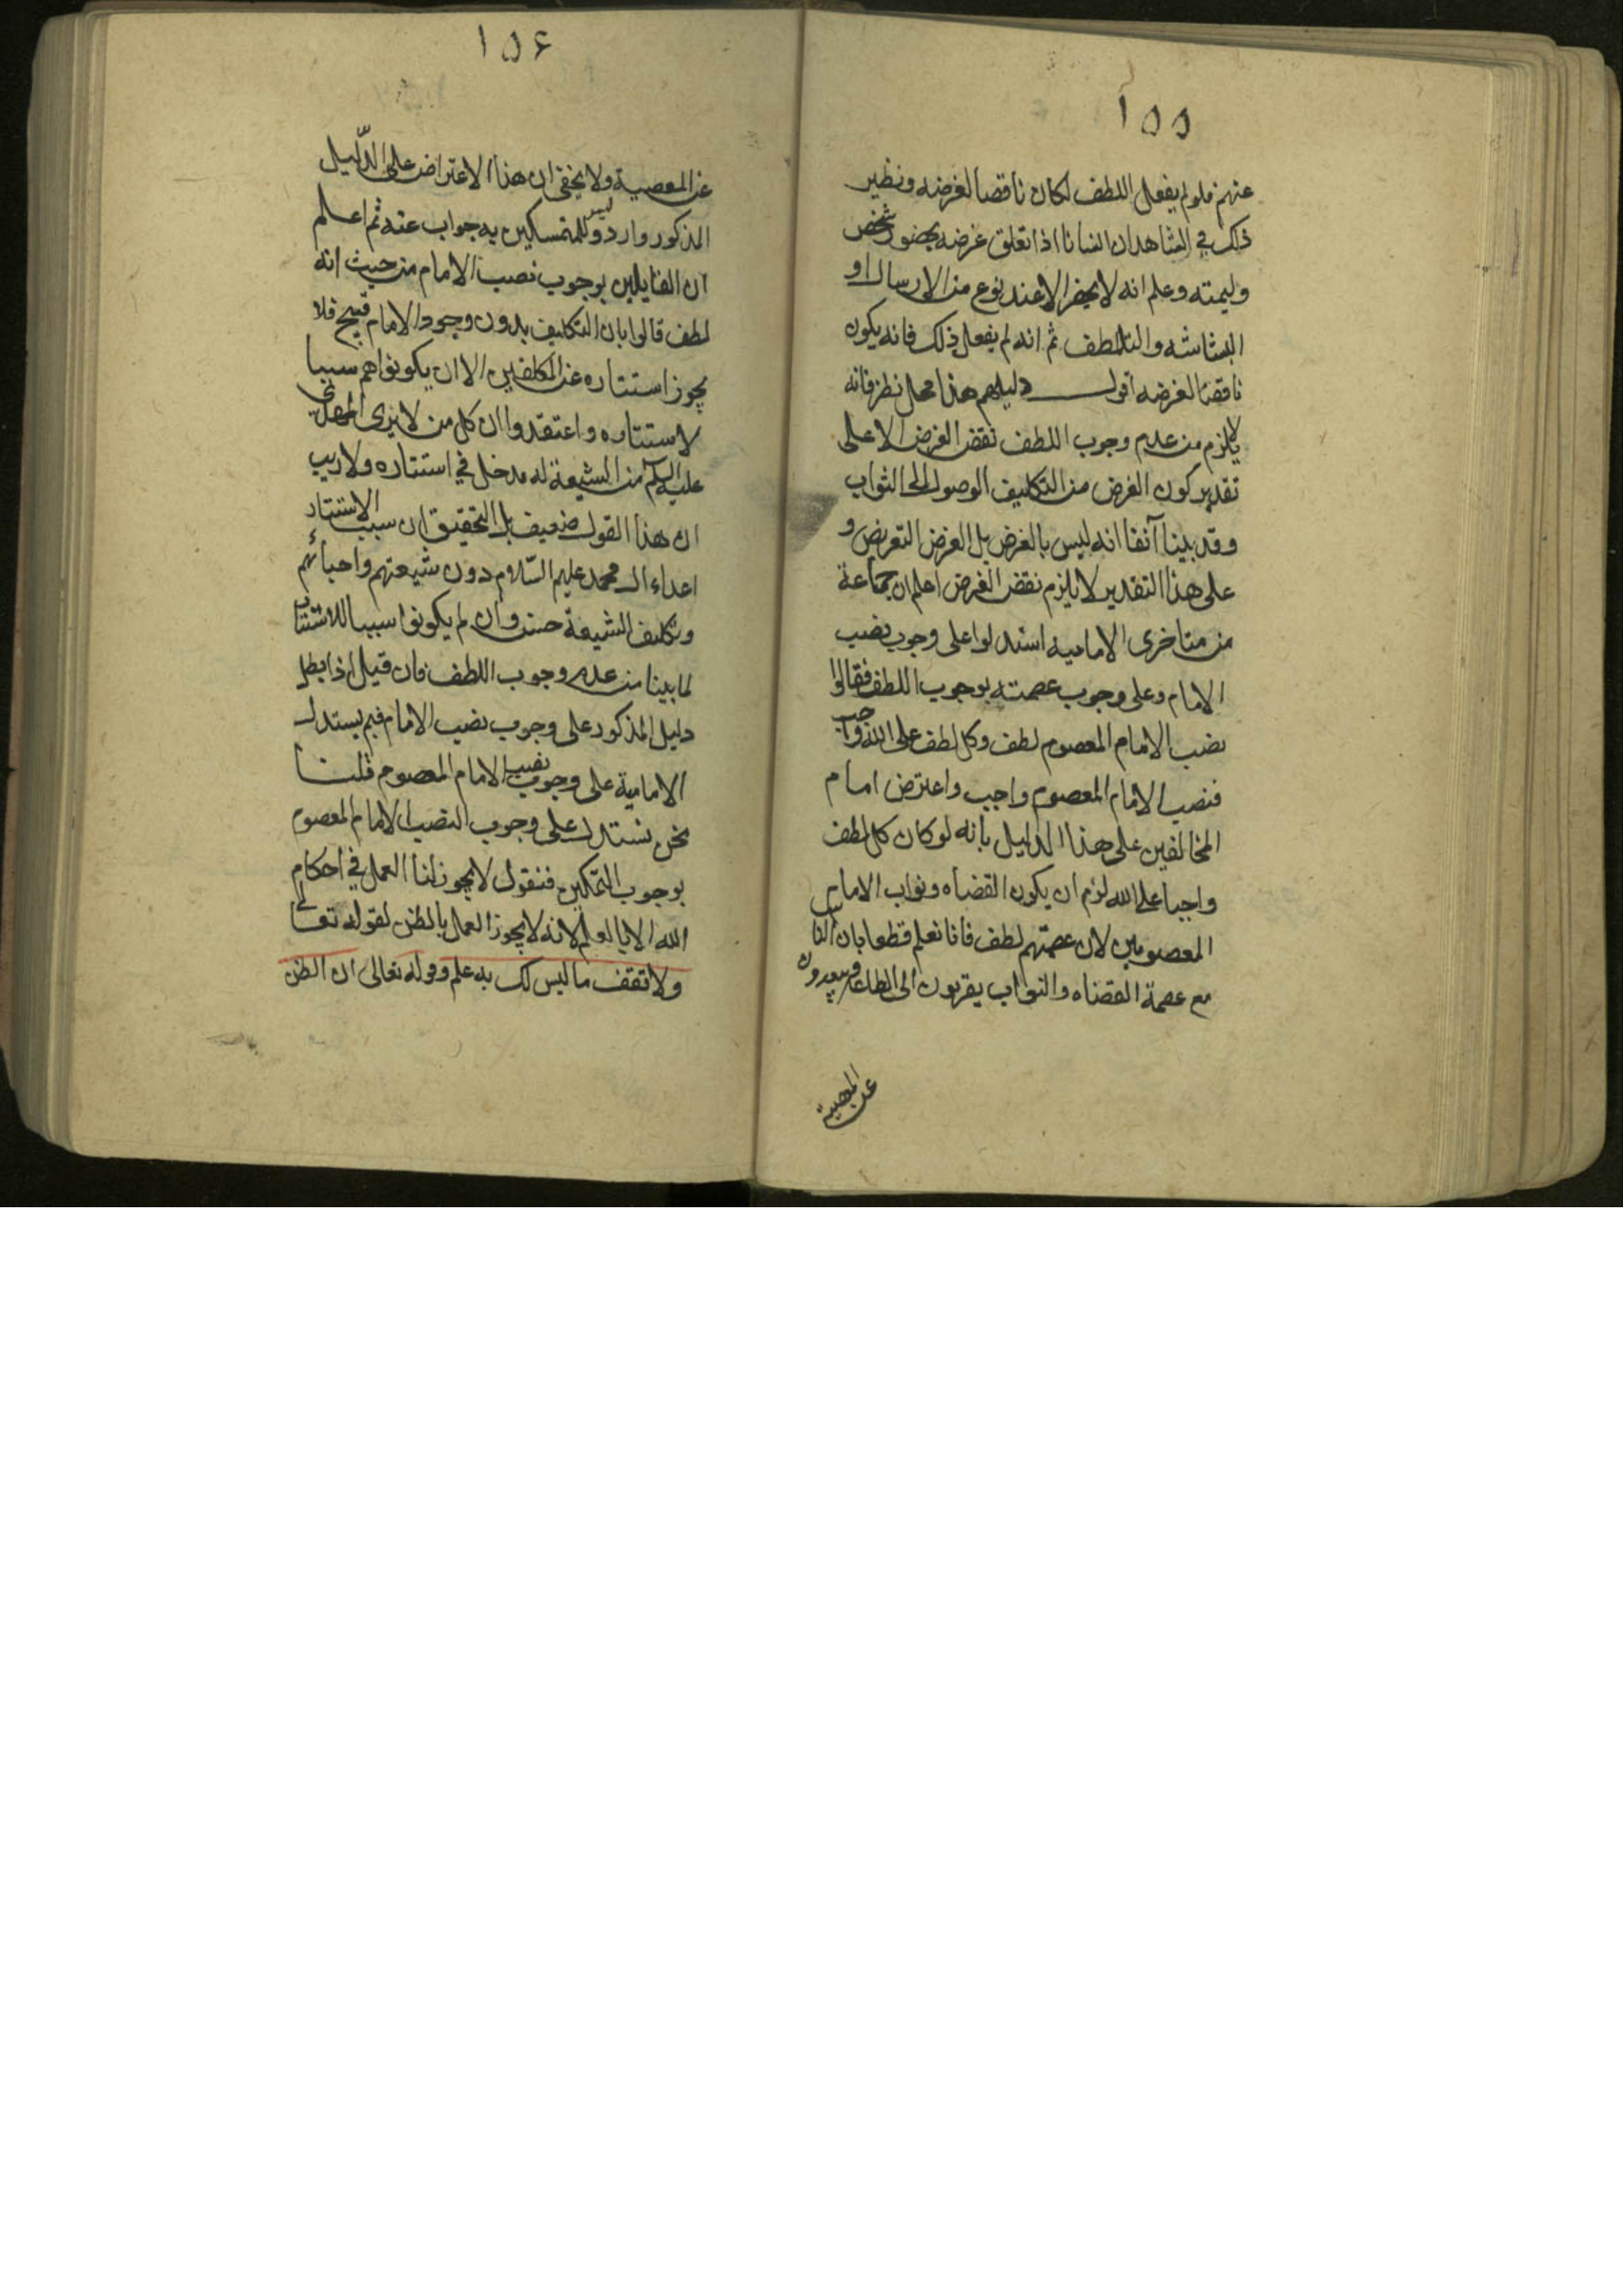 ١٥٥
عنهم فلو لم يفعل اللطف لكان ناقضا لغرضه ونظير
ذلك في الشاهد ان انسانا اذا تعلق غرضه بحضور شخص
وليمته وعلم انه لا يحضر الا عند نوع من الارسال او
البشاشه والتلطف ثم انه لم يفعل ذلك فانه يكون
ناقضا لغرضه اقول دليلهم هذا محل نظر فانه
لا يلزم من عدم وجوب اللطف نقض الغرض الا على
تقدير كون الغرض من التكليف الوصول الى الثواب
وقد بينا آنفا انه ليس بالغرض بل الغرض التعريض و
على هذا التقدير لا يلزم نقض الغرض اعلم ان جماعة
من متاخرى الاماميه استدلوا على وجوب نصب
الامام وعلى وجوب عصمته بوجوب اللطف فقالوا
نصب الامام المعصوم لطف وكل لطف على الله واجب
فنصب الامام المعصوم واجب واعترض امام
المخالفين على هذا الدليل بانه لو كان كل لطف
واجبا على الله لزم ان يكون القضاه ونواب الامام
المعصومين لان عصمتهم لطف فانا نعلم قطعا بان الناس
مع عصمة القضاه والنواب يقربون الى الطاعه ويبعدون
عن المعصية
١٥٦
عن المعصية ولا يخفى ان هذا الاعتراض على الدّليل
المذكور وارد وليس للمتمسكين به جواب عنه ثم اعلم
ان القايلين بوجوب نصب الامام من حيث انه
لطف قالوا بان التكليف بدون وجود الامام قبيح فلا
يجوز استتاره عن المكلفين الا ان يكونوا هم سببا
لاستتاره واعتقدوا ان كل من لا يرى المهدي
عليه السلم من الشيعة له مدخل في استتاره ولا ريب
ان هذا القول ضعيف بل التحقيق ان سبب الاستتار
اعداء ال محمد عليهم السّلام دون شيعتهم واحبائهم
وتكليف الشيعة حسن وان لم يكونوا سببا للاستتار
لما بينا من عدم وجوب اللطف فان قيل اذا بطل
دليل المذكور على وجوب نصب الامام فبم يستدل
الامامية على وجوب نصب الامام المعصوم قلنا
نحن نستدل على وجوب النصب الامام المعصوم
بوجوب التمكين فنقول لا يجوز لنا العمل في احكام
الله الا بالعلم لانه لا يجوز العمل بالظن لقوله تعالى
ولا تقف ما ليس لك به علم وقوله تعالى ان الظن